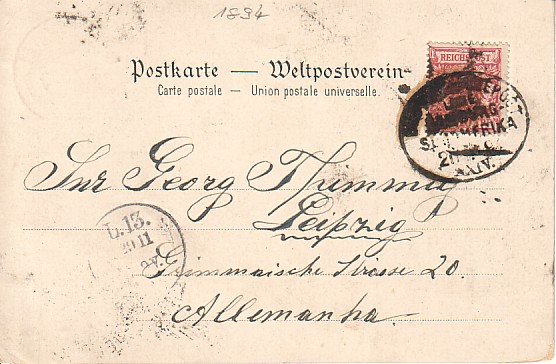 1894
Postkarte — Weltpostverein
Carte postale — Union postale universelle.
REICHSPOST
HAMBURG-
SÜDAMERIKA
XXIV.
Snr Georg Thummer
Leipzig
L.13.
20 11
Grimmaische Strasse 20.
Allemanha.